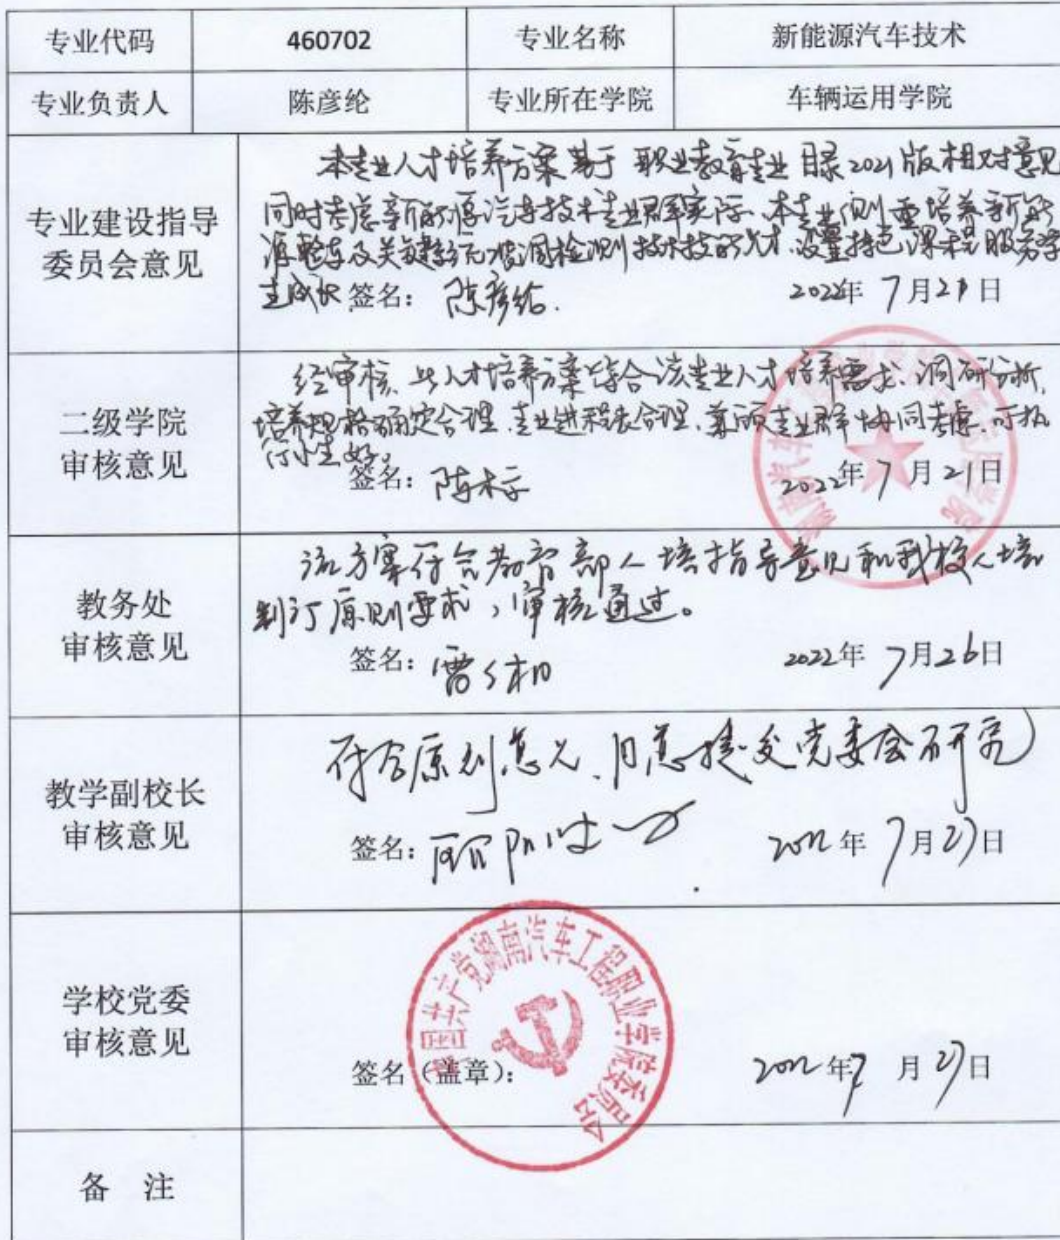 专业代码 460702 专业名称 新能源汽车技术
专业负责人 陈彦纶 专业所在学院 车辆运用学院
专业建设指导
委员会意见
本专业人才培养方案基于 职业教育专业 目录2021版相对意见
同时考虑新能源汽车技术专业群实际、本专业侧重培养新能
源整车及关键 检测技术技能人才 设置特色课程 服务学
生成长 签名：陈彦纶. 2022年 7月21日
二级学院
审核意见
经审核、此人才培养方案结合该专业人才培养需求、调研分析,
培养规格确定合理、专业进程表合理、兼顾专业群协同考虑、可执
行性好。
签名： 2022年 7月21日
教务处
审核意见
该方案符合教育部人培指导意见和我校人培
制订原则要求，审核通过。
签名： 2022年 7月26日
教学副校长
审核意见
符合原则意见、同意提交党委会研究
签名： 2022年 7月27日
学校党委
审核意见
中国共产党湖南汽车工程职业学院委员会
签名（盖章）： 2022年7月27日
备 注